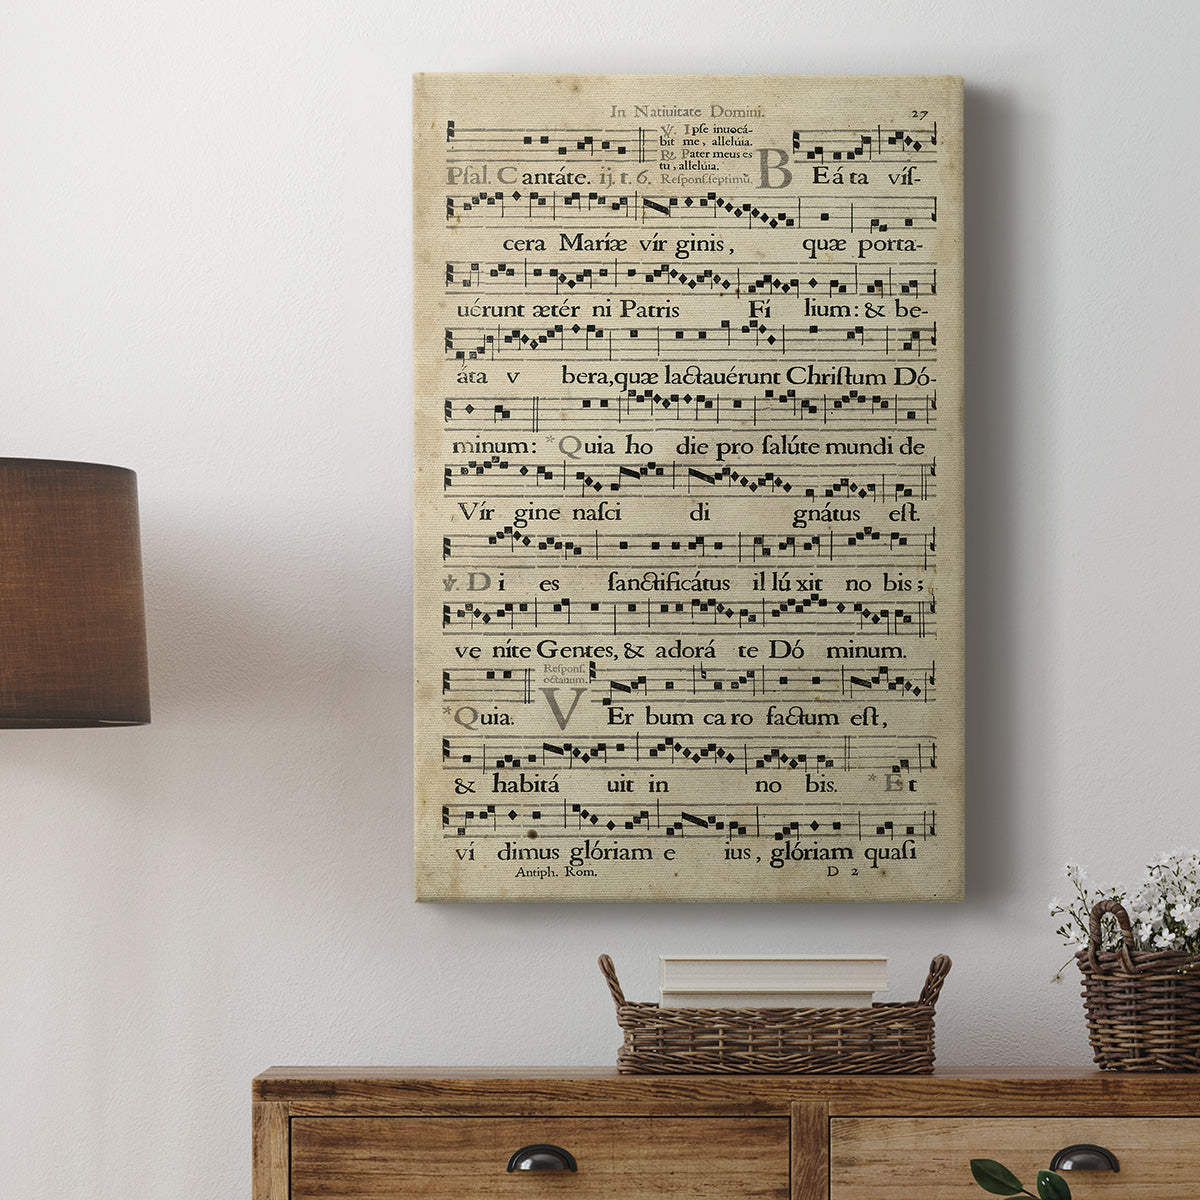 In Natiuitate Domini. 27
V. Ipse inuocá-
bit me, allelúia.
R. Pater meus es
tu, allelúia.
Pſal. Cantáte. ij. t. 6. Reſponſ. ſeptimũ. BEáta víſ-
cera Maríæ vír ginis, quæ porta-
uérunt ætér ni Patris Fí lium: & be-
áta v bera, quæ lactauérunt Chriſtum Dó-
minum: *Quia ho die pro ſalúte mundi de
Vír gine naſci di gnátus eſt.
V. Di es ſanctificátus il lú xit no bis;
ve níte Gentes, & adorá te Dó minum.
Reſponſ.
octauum.
*Quia. VEr bum ca ro factum eſt,
& habitá uit in no bis. * Et
ví dimus glóriam e ius, glóriam quaſi
Antiph. Rom. D 2